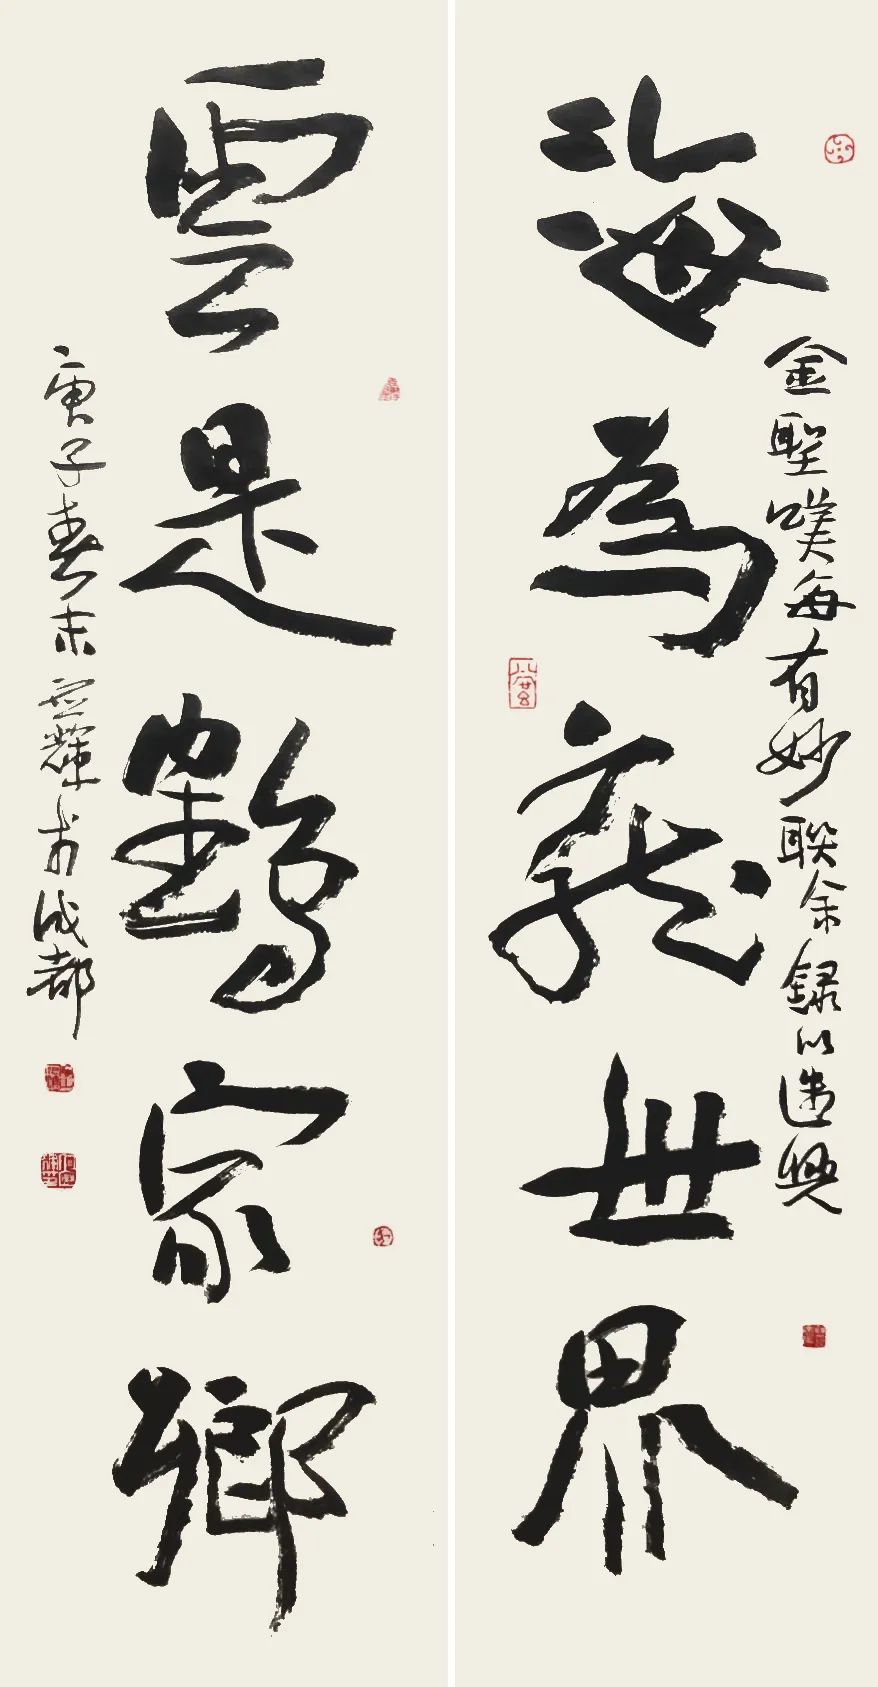 金聖嘆每有妙聯余錄以遣興
海為龍世界
雲是鶴家鄉
庚子春末应輝於成都